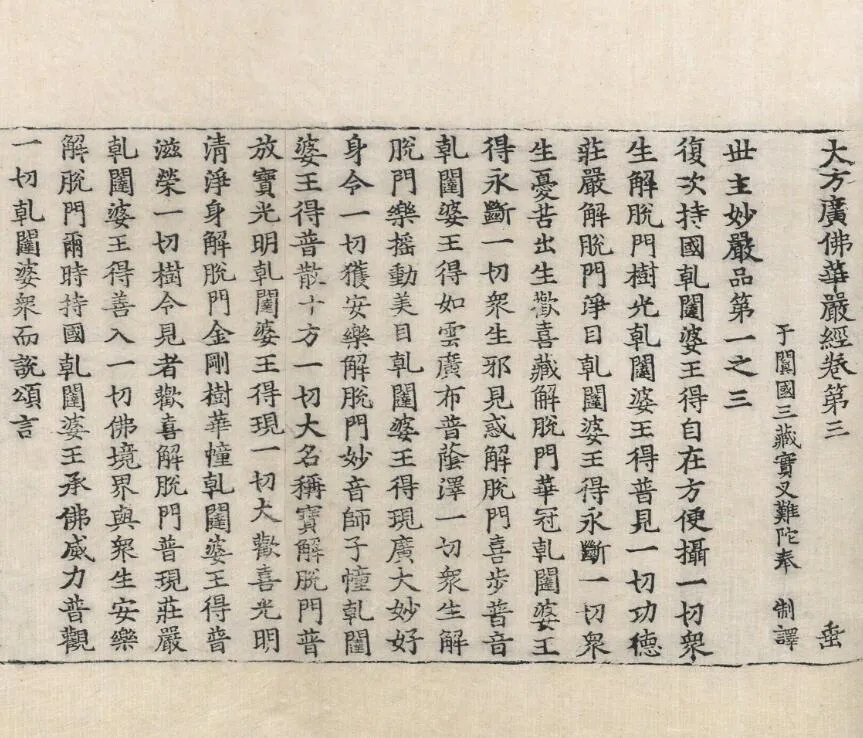 大方廣佛華嚴經卷第三 垂
于闐國三藏實叉難陀奉 制譯
世主妙嚴品第一之三
復次持國乹闥婆王得自在方便攝一切衆
生解脫門樹光乹闥婆王得普見一切功德
莊嚴解脫門淨目乹闥婆王得永斷一切衆
生憂苦出生歡喜藏解脫門華冠乹闥婆王
得永斷一切衆生邪見惑解脫門喜步普音
乹闥婆王得如雲廣布普蔭澤一切衆生解
脫門樂摇動美目乹闥婆王得現廣大妙好
身令一切獲安樂解脫門妙音師子幢乹闥
婆王得普散十方一切大名稱寶解脫門普
放寶光明乹闥婆王得現一切大歡喜光明
清淨身解脫門金剛樹華幢乹闥婆王得普
滋榮一切樹令見者歡喜解脫門普現莊嚴
乹闥婆王得善入一切佛境界與衆生安樂
解脫門爾時持國乹闥婆王承佛威力普觀
一切乹闥婆衆而說頌言